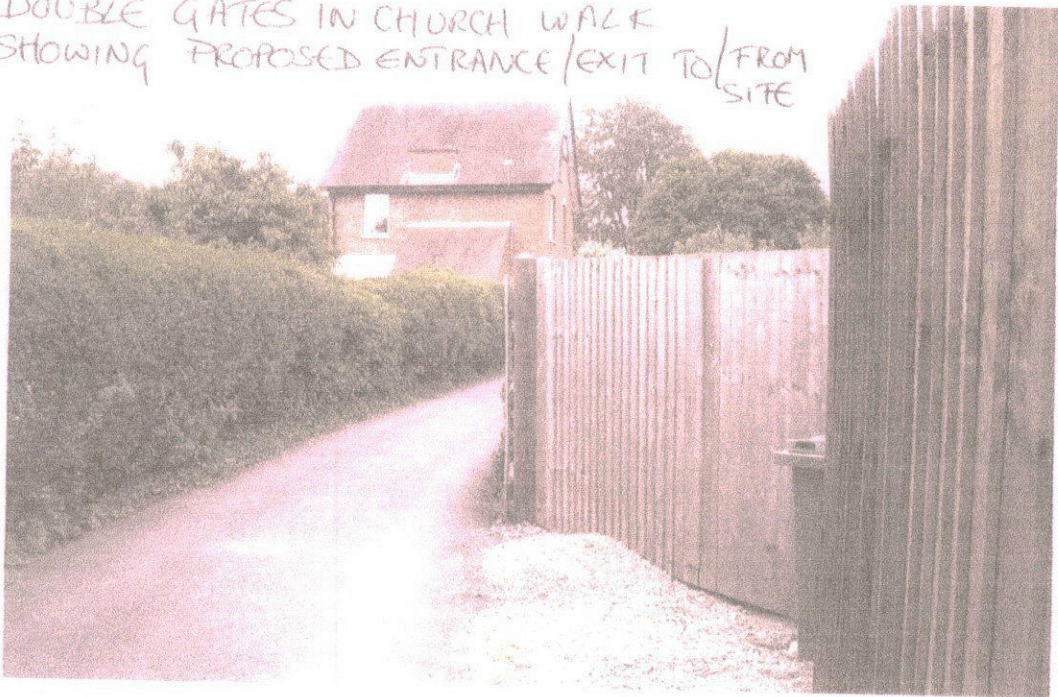 DOUBLE GATES IN CHURCH WALK
SHOWING PROPOSED ENTRANCE/EXIT TO/FROM
SITE